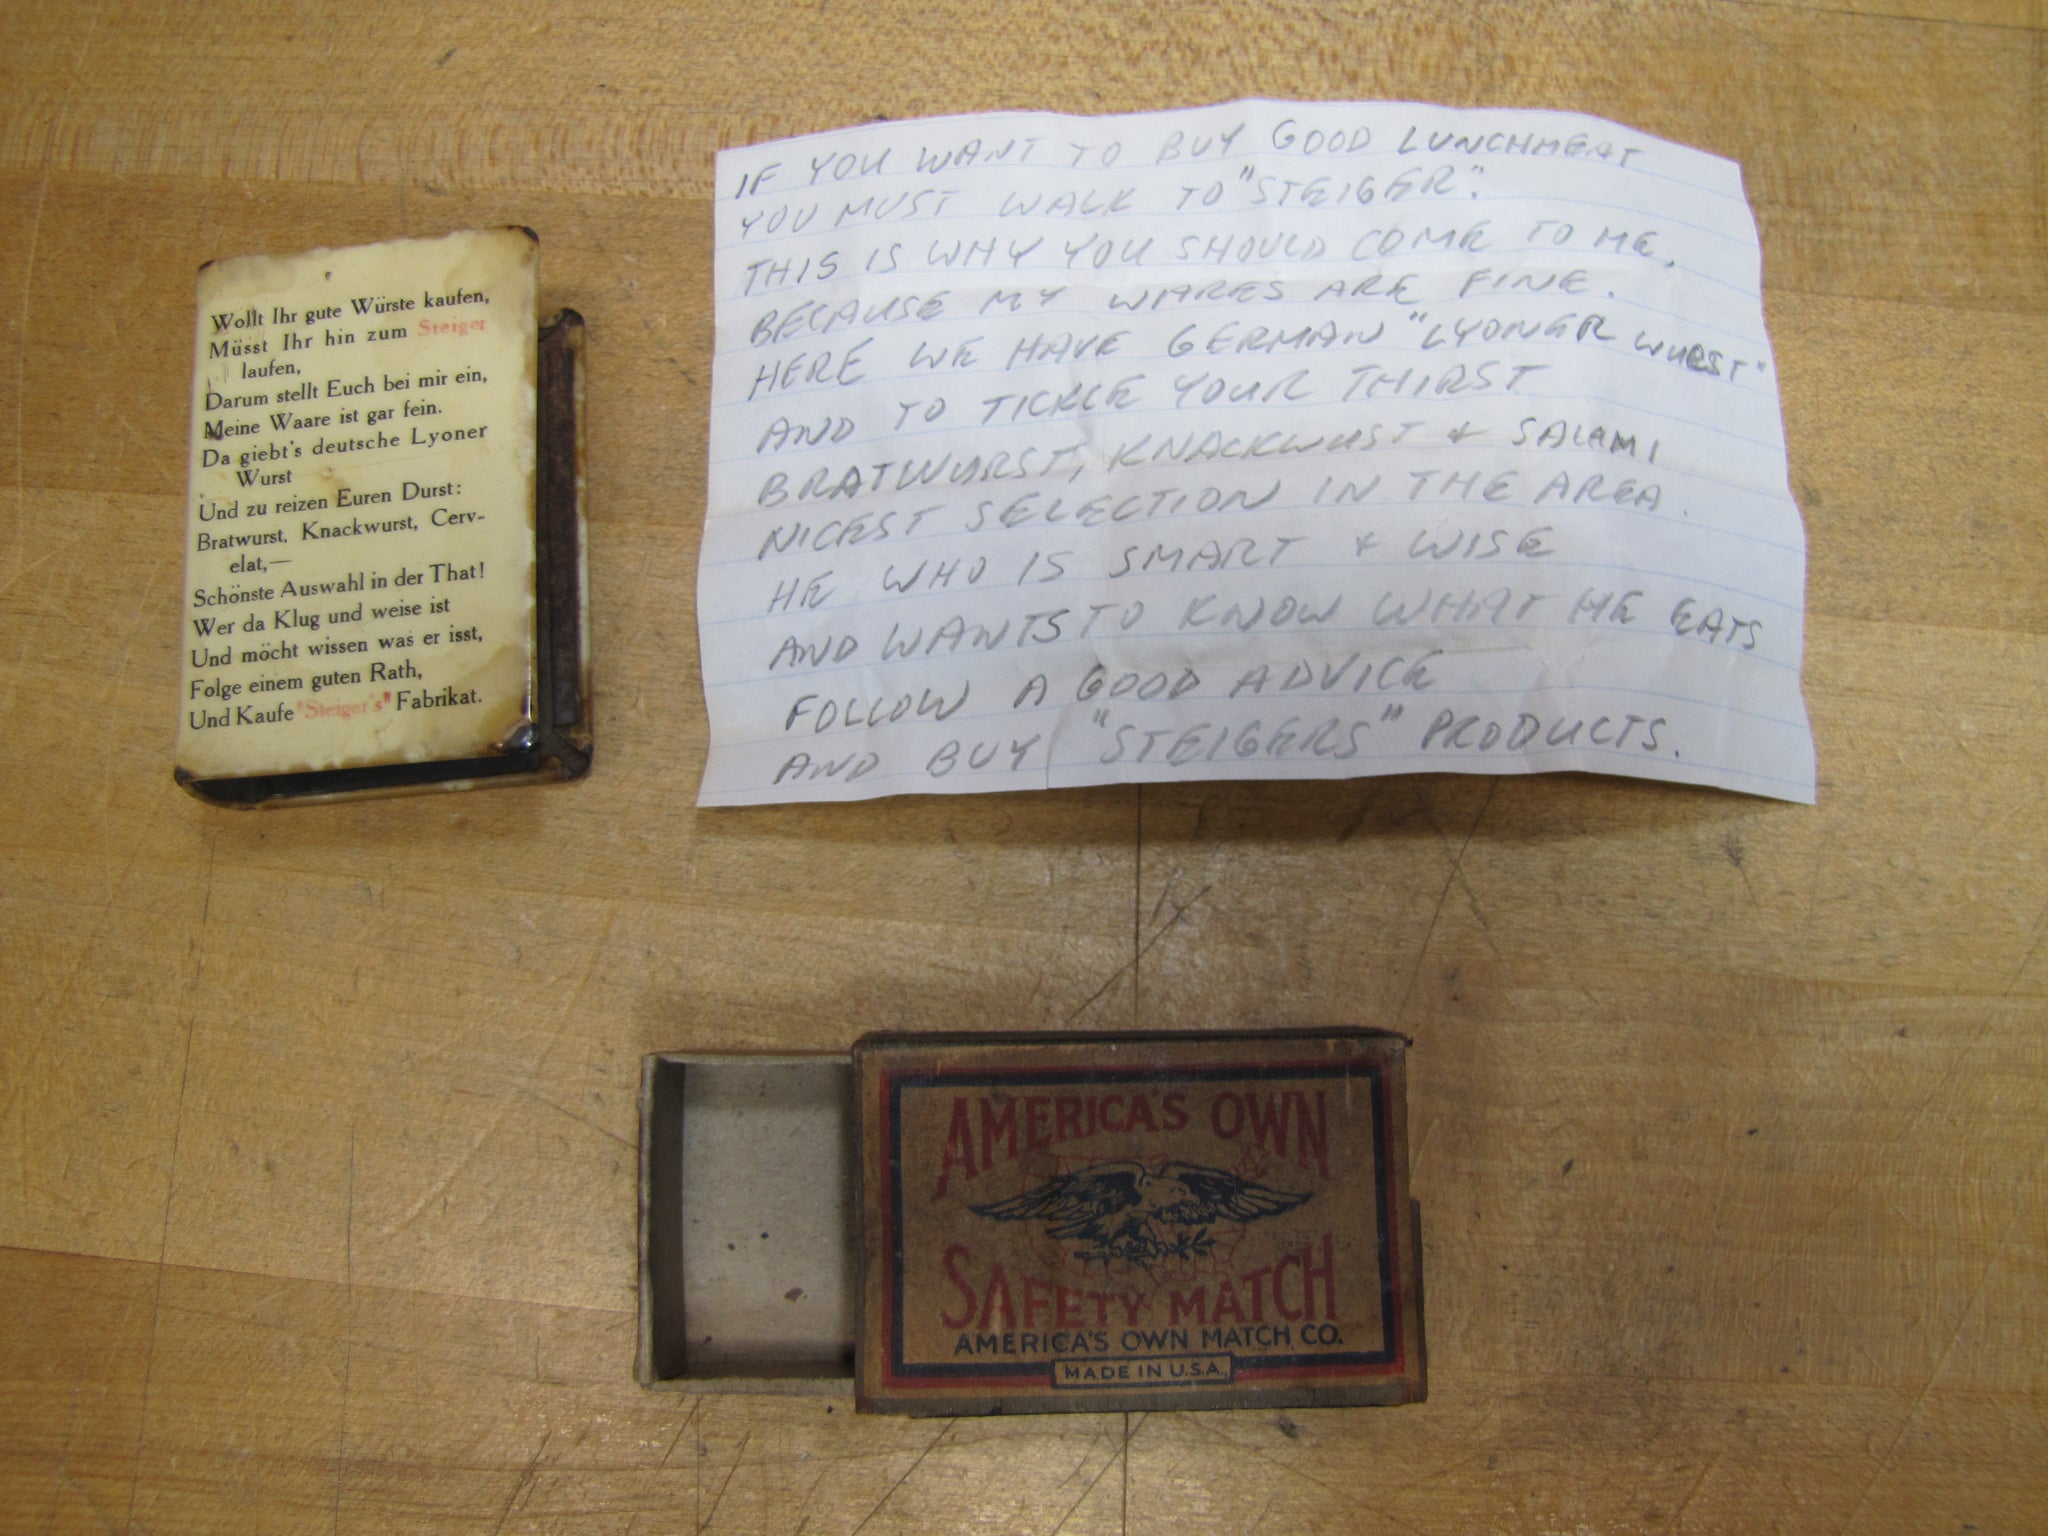 Wollt Ihr gute Würste kaufen,
Müsst Ihr hin zum Steiger
laufen,
Darum stellt Euch bei mir ein,
Meine Waare ist gar fein.
Da giebt's deutsche Lyoner
Wurst
Und zu reizen Euren Durst:
Bratwurst, Knackwurst, Cerv-
elat,—
Schönste Auswahl in der That!
Wer da Klug und weise ist
Und möcht wissen was er isst,
Folge einem guten Rath,
Und Kaufe "Steiger's" Fabrikat.
IF YOU WANT TO BUY GOOD LUNCHMEAT
YOU MUST WALK TO "STEIGER".
THIS IS WHY YOU SHOULD COME TO ME,
BECAUSE MY WARES ARE FINE.
HERE WE HAVE GERMAN "LYONER WURST"
AND TO TICKLE YOUR THIRST
BRATWURST, KNACKWUST & SALAMI
NICEST SELECTION IN THE AREA.
HE WHO IS SMART & WISE
AND WANTS TO KNOW WHAT HE EATS
FOLLOW A GOOD ADVICE
AND BUY "STEIGERS" PRODUCTS.
AMERICA'S OWN
SAFETY MATCH
AMERICA'S OWN MATCH CO.
MADE IN U.S.A.